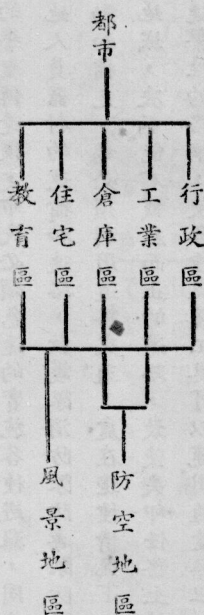 都市
行政區
工業區
倉庫區
住宅區
教育區
防空地區
風景地區